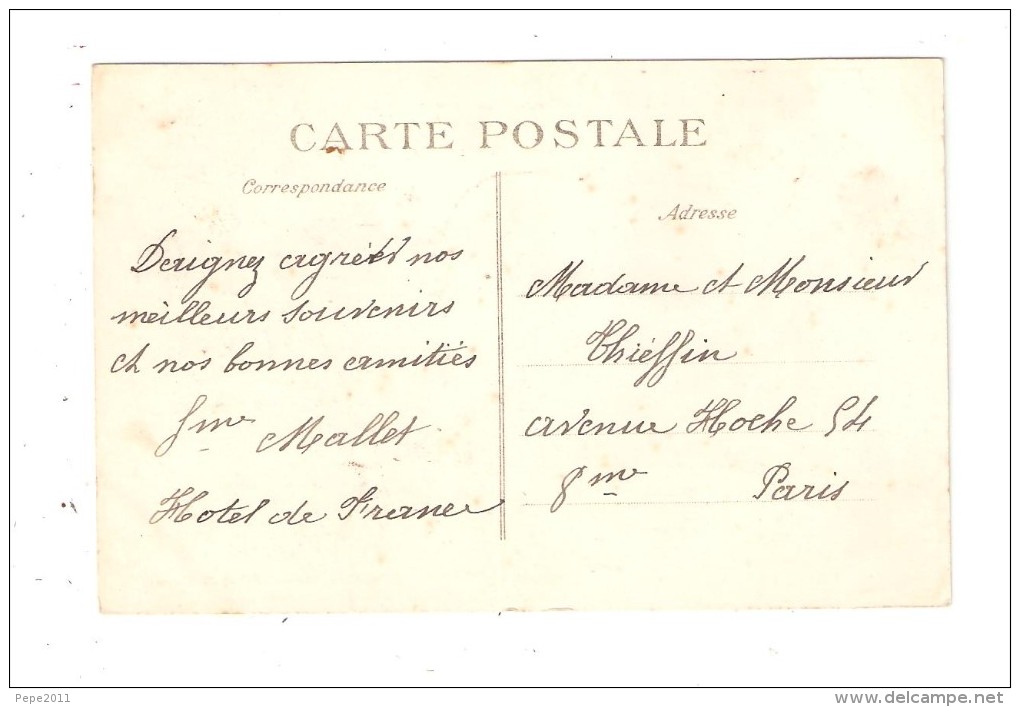 CARTE POSTALE
Correspondance
Daignez agréer nos
meilleurs souvenirs
et nos bonnes amitiés
Mallet
Hotel de France
Adresse
Madame et Monsieur
Thiéffin
avenue Hoche 54
8me Paris
Pepe2011
www.delcampe.net